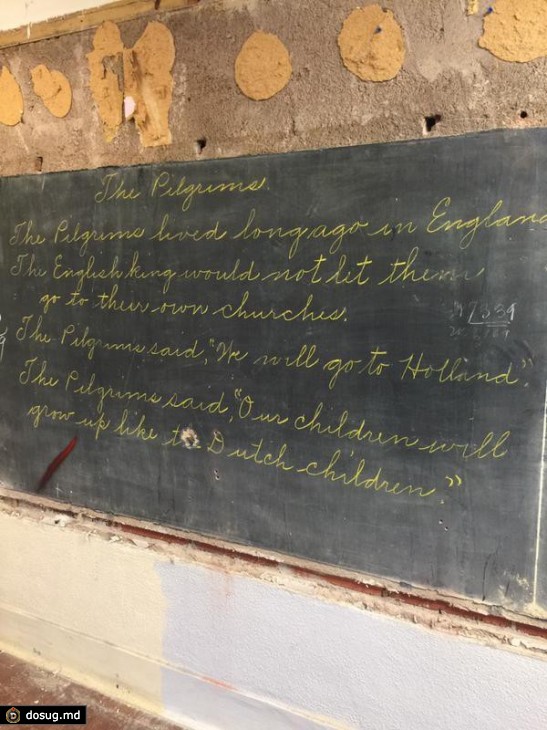 The Pilgrims.
The Pilgrims lived long ago in England
The English king would not let them
go to their own churches.
The Pilgrims said, "We will go to Holland."
The Pilgrims said, "Our children will
grow up like Dutch children."
dosug.md